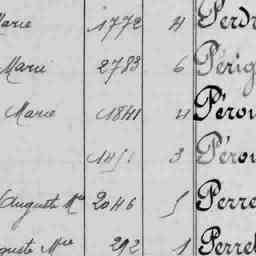 Marie 1772 4 Perdr
Marie 2783 6 Périg
Marie 1841 4 Pérou
1451 3 Pérou
Auguste Mie 2046 5 Perre
guste Mie 292 1 Perre